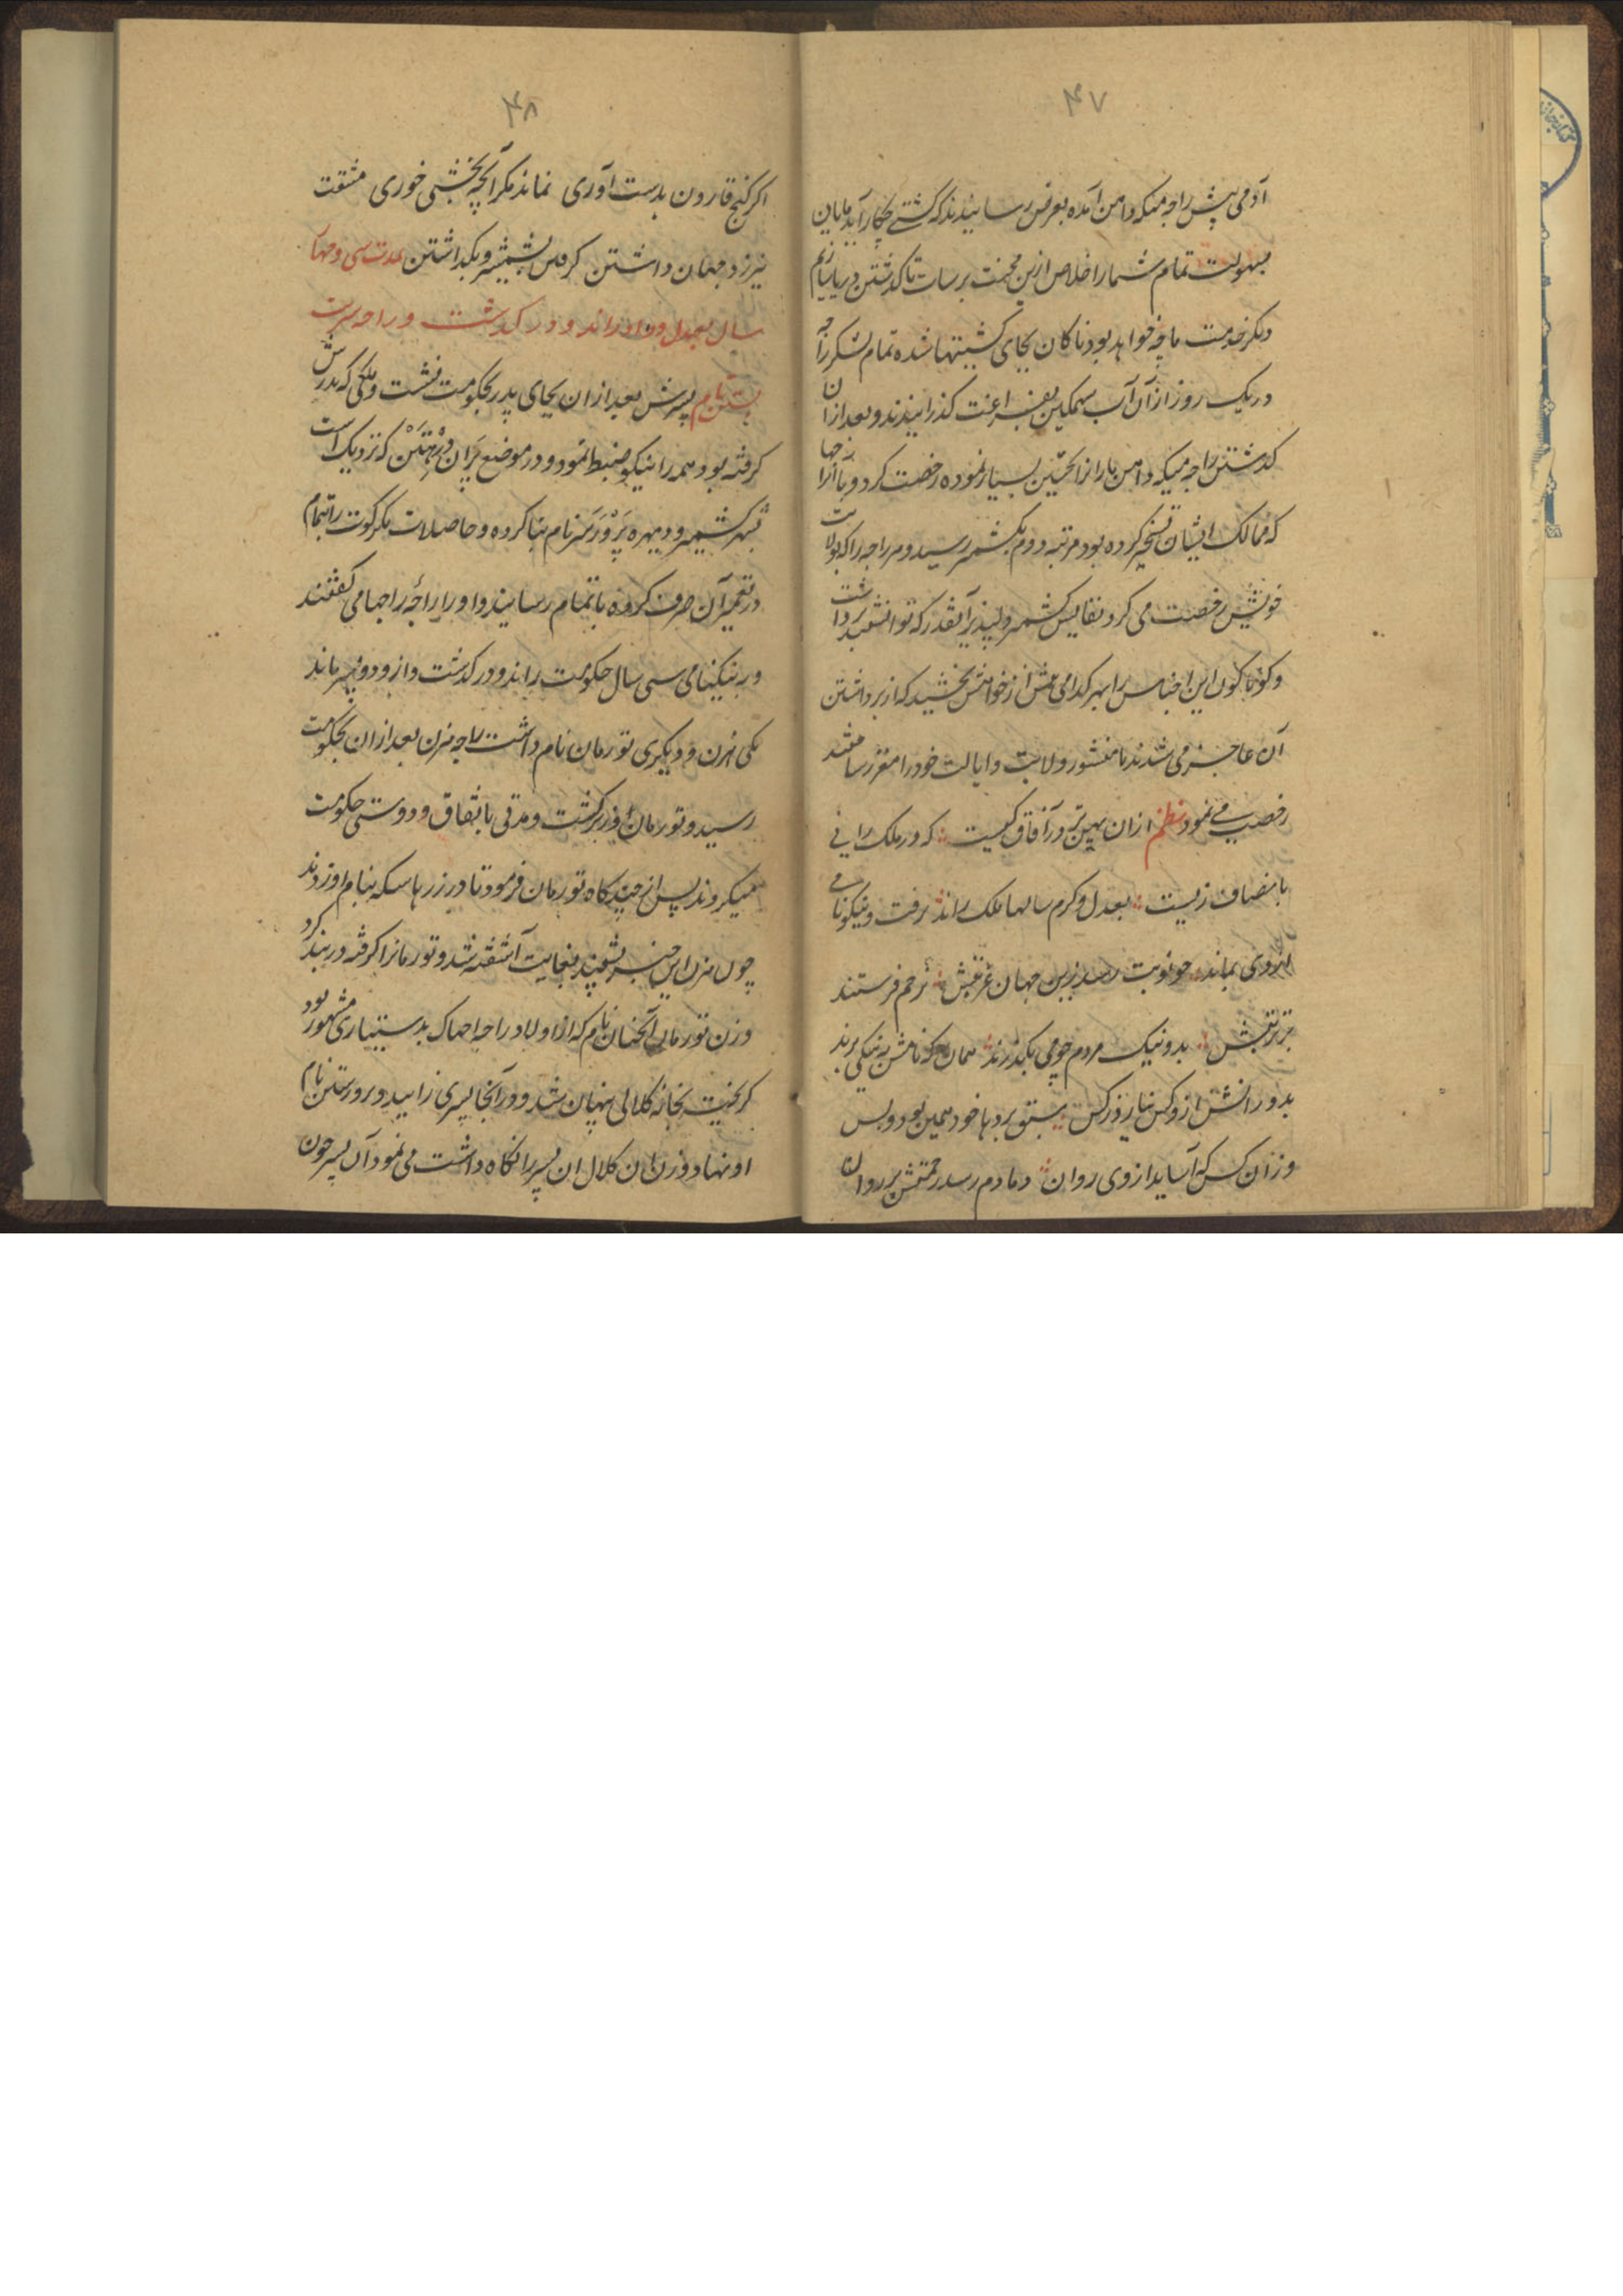 ۴۷
آدمی پیش راجه میگه داهن آمده بعرض رسانیدند که کشتے بچکار آید مایان
بسهولت تمام شما را خلاص ازین محنت برسات تا گذشتن دریا
دیگر خدمت ما چه خواهد بود ناکان بجای کشتیها شده تمام لشکر راجه
در یک روز ازان آب سهمگین بفراغت گذرانیدند و بعد ازان
گذشتن راجه میگه داهن بسیار نموده رخصت کرد و راجها
که ممالک ایشان تسخیر کرده بود مرتبه دوم بکشمیر رسید و هر راجه را که بولایت
خویش رخصت می کرد نفایس کشمیر دلپذیر آنقدر که توانستند برداشت
و گوناگون این اجناس را بهر کدامی بیش از خواهش بخشید که از برداشتن
آن عاجز می شدند با منشور ولایت و ایالت خود را مقرر ساخته
رخصت مے نمود نظم ازان بهترین در آفاق کیست که در ملک رانی
بانصاف زیست بعدل و کرم سالها ملک راند برفت و نیکونامے
ازوی بماند چو نوبت رسد زین جهان غربتش ترحم فرستند
بر تربتش بد و نیک مردم چو می بگذرند همان به که نامش به نیکی برند
بدورانش از کس نیازرد کس سبق برد با خود همین بود و بس
وزان کس که آساید از وی روان دمادم رسد رحمتش بر روان
۴۸
اگر گنج قارون بدست آوری نماند مگر آنچه بخشی خوری مشقت
نیرزد جهان داشتن گرفتن بشمشیر و بگذاشتن مدت سی و چهار
سال بعدل و داد راند و درگذشت و راجه سرست
سین نام پسرش بعد ازان بجای پدر بحکومت نشست و ملکی که پدرش
گرفته بود همه را نیکو ضبط نمود و در موضع پران که نزدیک است
بشهر کشمیر و دیهره نام بنا کرده و حاصلات نگرکوت را تمام
در تعمیر آن صرف کرده باتمام رسانید و او را راجه راجها می گفتند
و به نیکنامی سی سال حکومت راند و درگذشت و ازو دو پسر ماند
یکی هرن و دیگری تورمان نام داشت راجه هرن بعد ازان بحکومت
رسید و تورمان وزیر گشت و مدتی باتفاق و دوستی حکومت
میکردند پس از چندگاه تورمان فرمود تا در زرها سکه بنام او زدند
چون هرن این خبر شنید بغایت آشفته شد و تورمان را گرفته در بند کرد
وزن تورمان نام که از اولاد راجه مشهور بود
گریخت بخانه کلالی پنهان شد و در آنجا پسری زایید و پرورسین نام
او نهاد و زن ان کلال ان پسر را نگاه داشت می نمود آن پسر چون